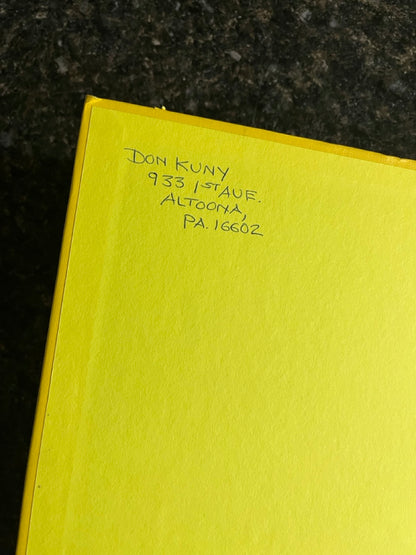 DON KUNY
933 1ST AVE.
ALTOONA,
PA. 16602